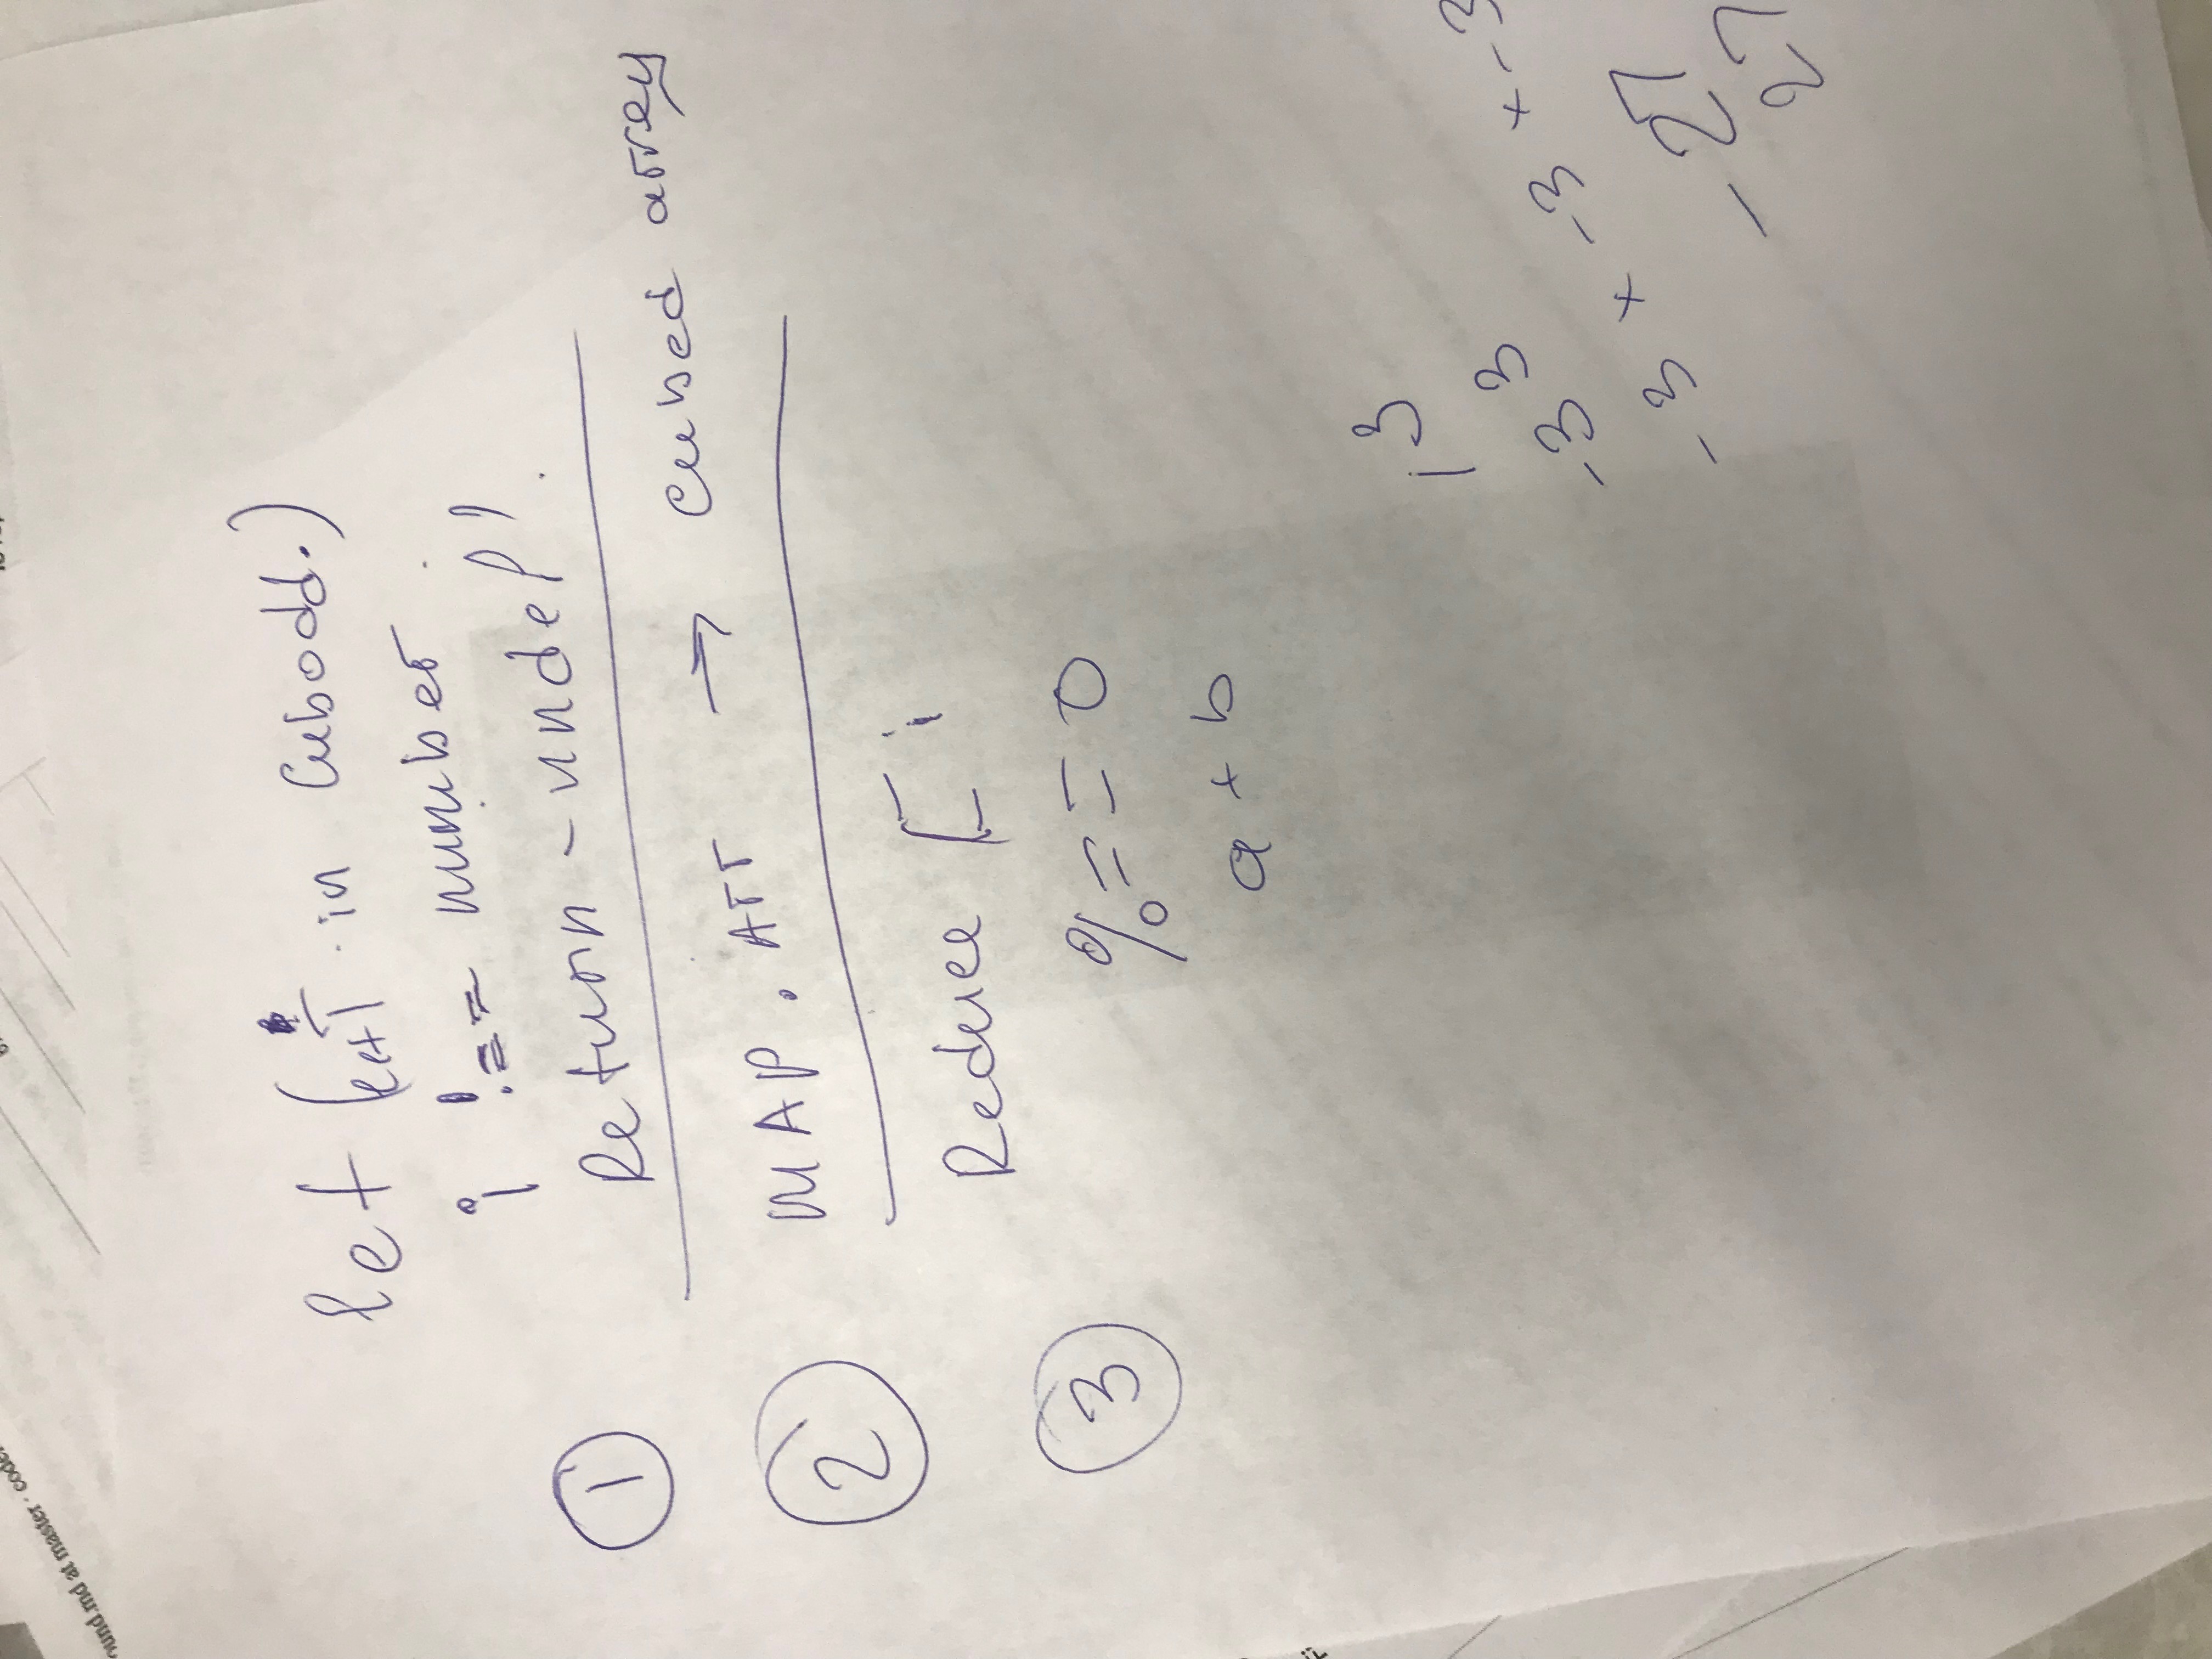 ound.md at master · code
let (let i in Cubodd.)
i !== number
① Return - undef'.
② MAP . Arr → cubed array
Reduce [ i
③ % === 0
a + b
1 3
-3 3
-3 × -3 × -3
- 27
27